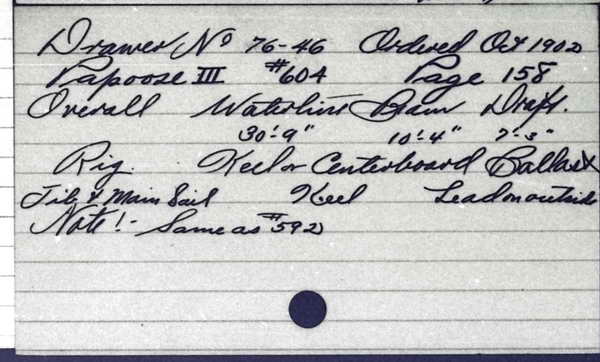 Drawer No 76-46 Ordered Oct 1902
Papoose III #604 Page 158
Overall Waterline Beam Draft.
30'-9" 10'-4" 7'-3"
Rig Keel or Centerboard Ballast
Jib & Main Sail Keel Lead on outside
Note!- Same as #592